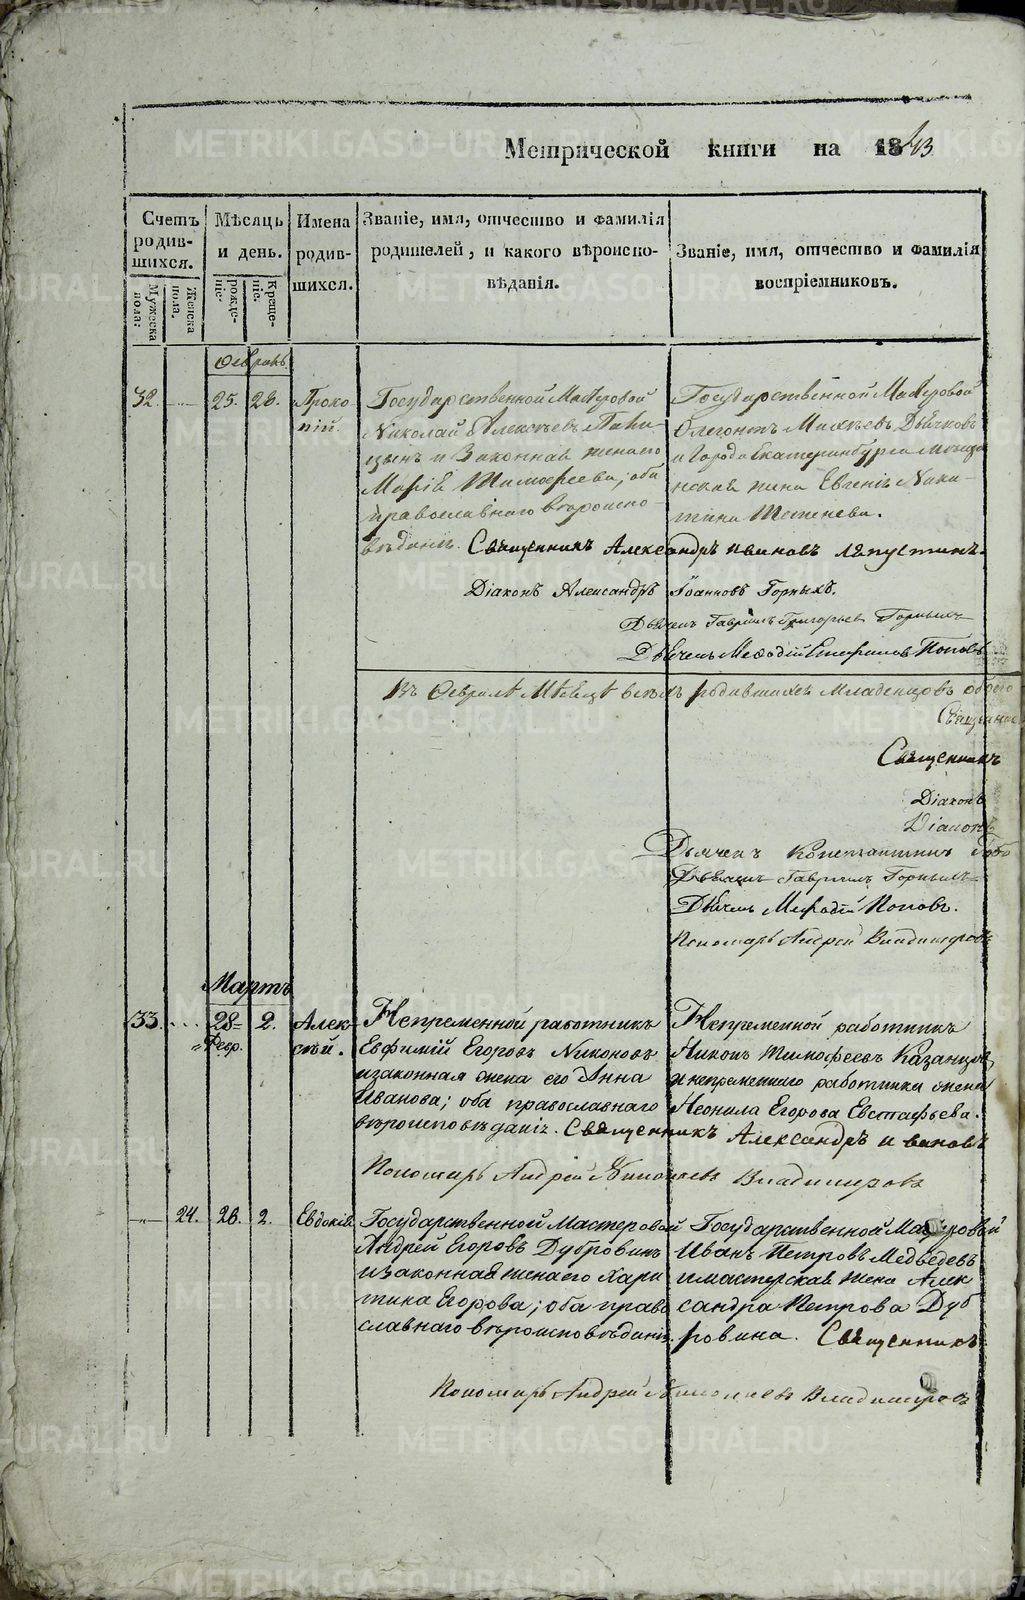 Метрической книги на 1843
Счетъ родив-шихся.
Мужеска пола.
Женска пола.
Мѣсяцъ и день.
рожде-ніе.
Креще-ніе.
Имена родив-шихся.
Званіе, имя, отчество и фамилія
родителей, и какого вѣроиспо-
вѣданія.
Званіе, имя, отчество и фамилія
воспріемниковъ.
Февраль
32 25. 28. Проко
пій.
Государственной Мастеровой
Николай Алексѣевъ
и Законная жена его
Марія Тимофеева; оба
православнаго вѣроиспо
вѣданія. Священникъ Александръ Ивановъ Лапустинъ.
Государственной Мастеровой
Дьячковъ
и Города Екатеринбурга Мѣща
нская жена Евгенія Ники-
тина
Діаконъ Александръ Іоанновъ Горныхъ.
Дьячекъ Гавріилъ Григорьевъ Горныхъ
Дьячекъ Меѳодій Стефановъ Поповъ
Въ Февралѣ Мѣсяцѣ всѣхъ родившихся Младенцовъ обоего
Священник
Священникъ
Діаконъ
Діаконъ
Дьячекъ Константинъ
Дьячекъ Гавріилъ Горныхъ
Дьячекъ Меѳодій Поповъ.
Пономарь Андрей Владимировъ
Мартъ
33. 28 2. Алек
Февр. сѣй.
Непременной работникъ
Евфимій Егоровъ Никоновъ
и законная жена его Анна
Иванова; оба православнаго
вѣроисповѣданія. Священникъ Александръ Ивановъ
Непременной работникъ
Никонъ Тимофеевъ Казанцовъ,
и непременнаго работника жена
Неонила Егорова Евстафьева.
Пономарь Андрей Николаевъ Владимировъ
24. 26. 2. Евдокія.
Государственной Мастеровой
Андрей Егоровъ Дубровинъ
и Законная жена его Хари
тина Егорова; оба право
славнаго вѣроисповѣданія.
Государственной Мастеровой
Иванъ Петровъ Медведевъ
и мастерская жена Алек
сандра Петрова Дуб
ровина. Священникъ
Пономарь Андрей Николаевъ Владимировъ
METRIKI.GASO-URAL.RU